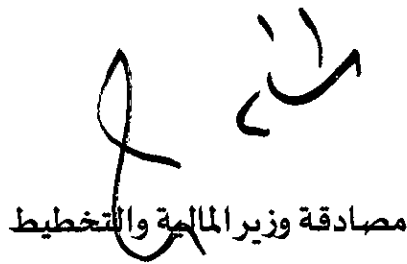 مصادقة وزير المالية والتخطيط